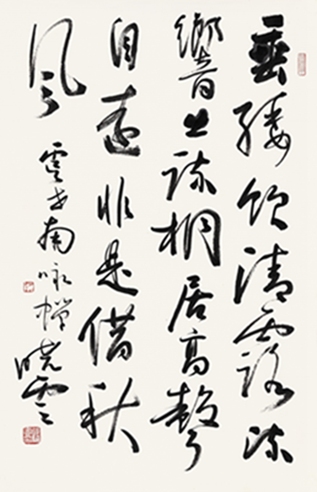 垂緌飲清露流
響出疏桐居高聲
自遠非是借秋
風 虞世南咏蟬 曉雲